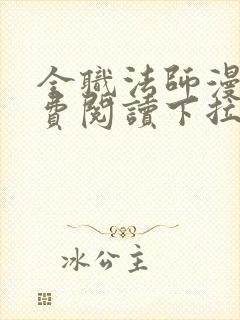 全職法師漫
費閱讀下拉
冰公主